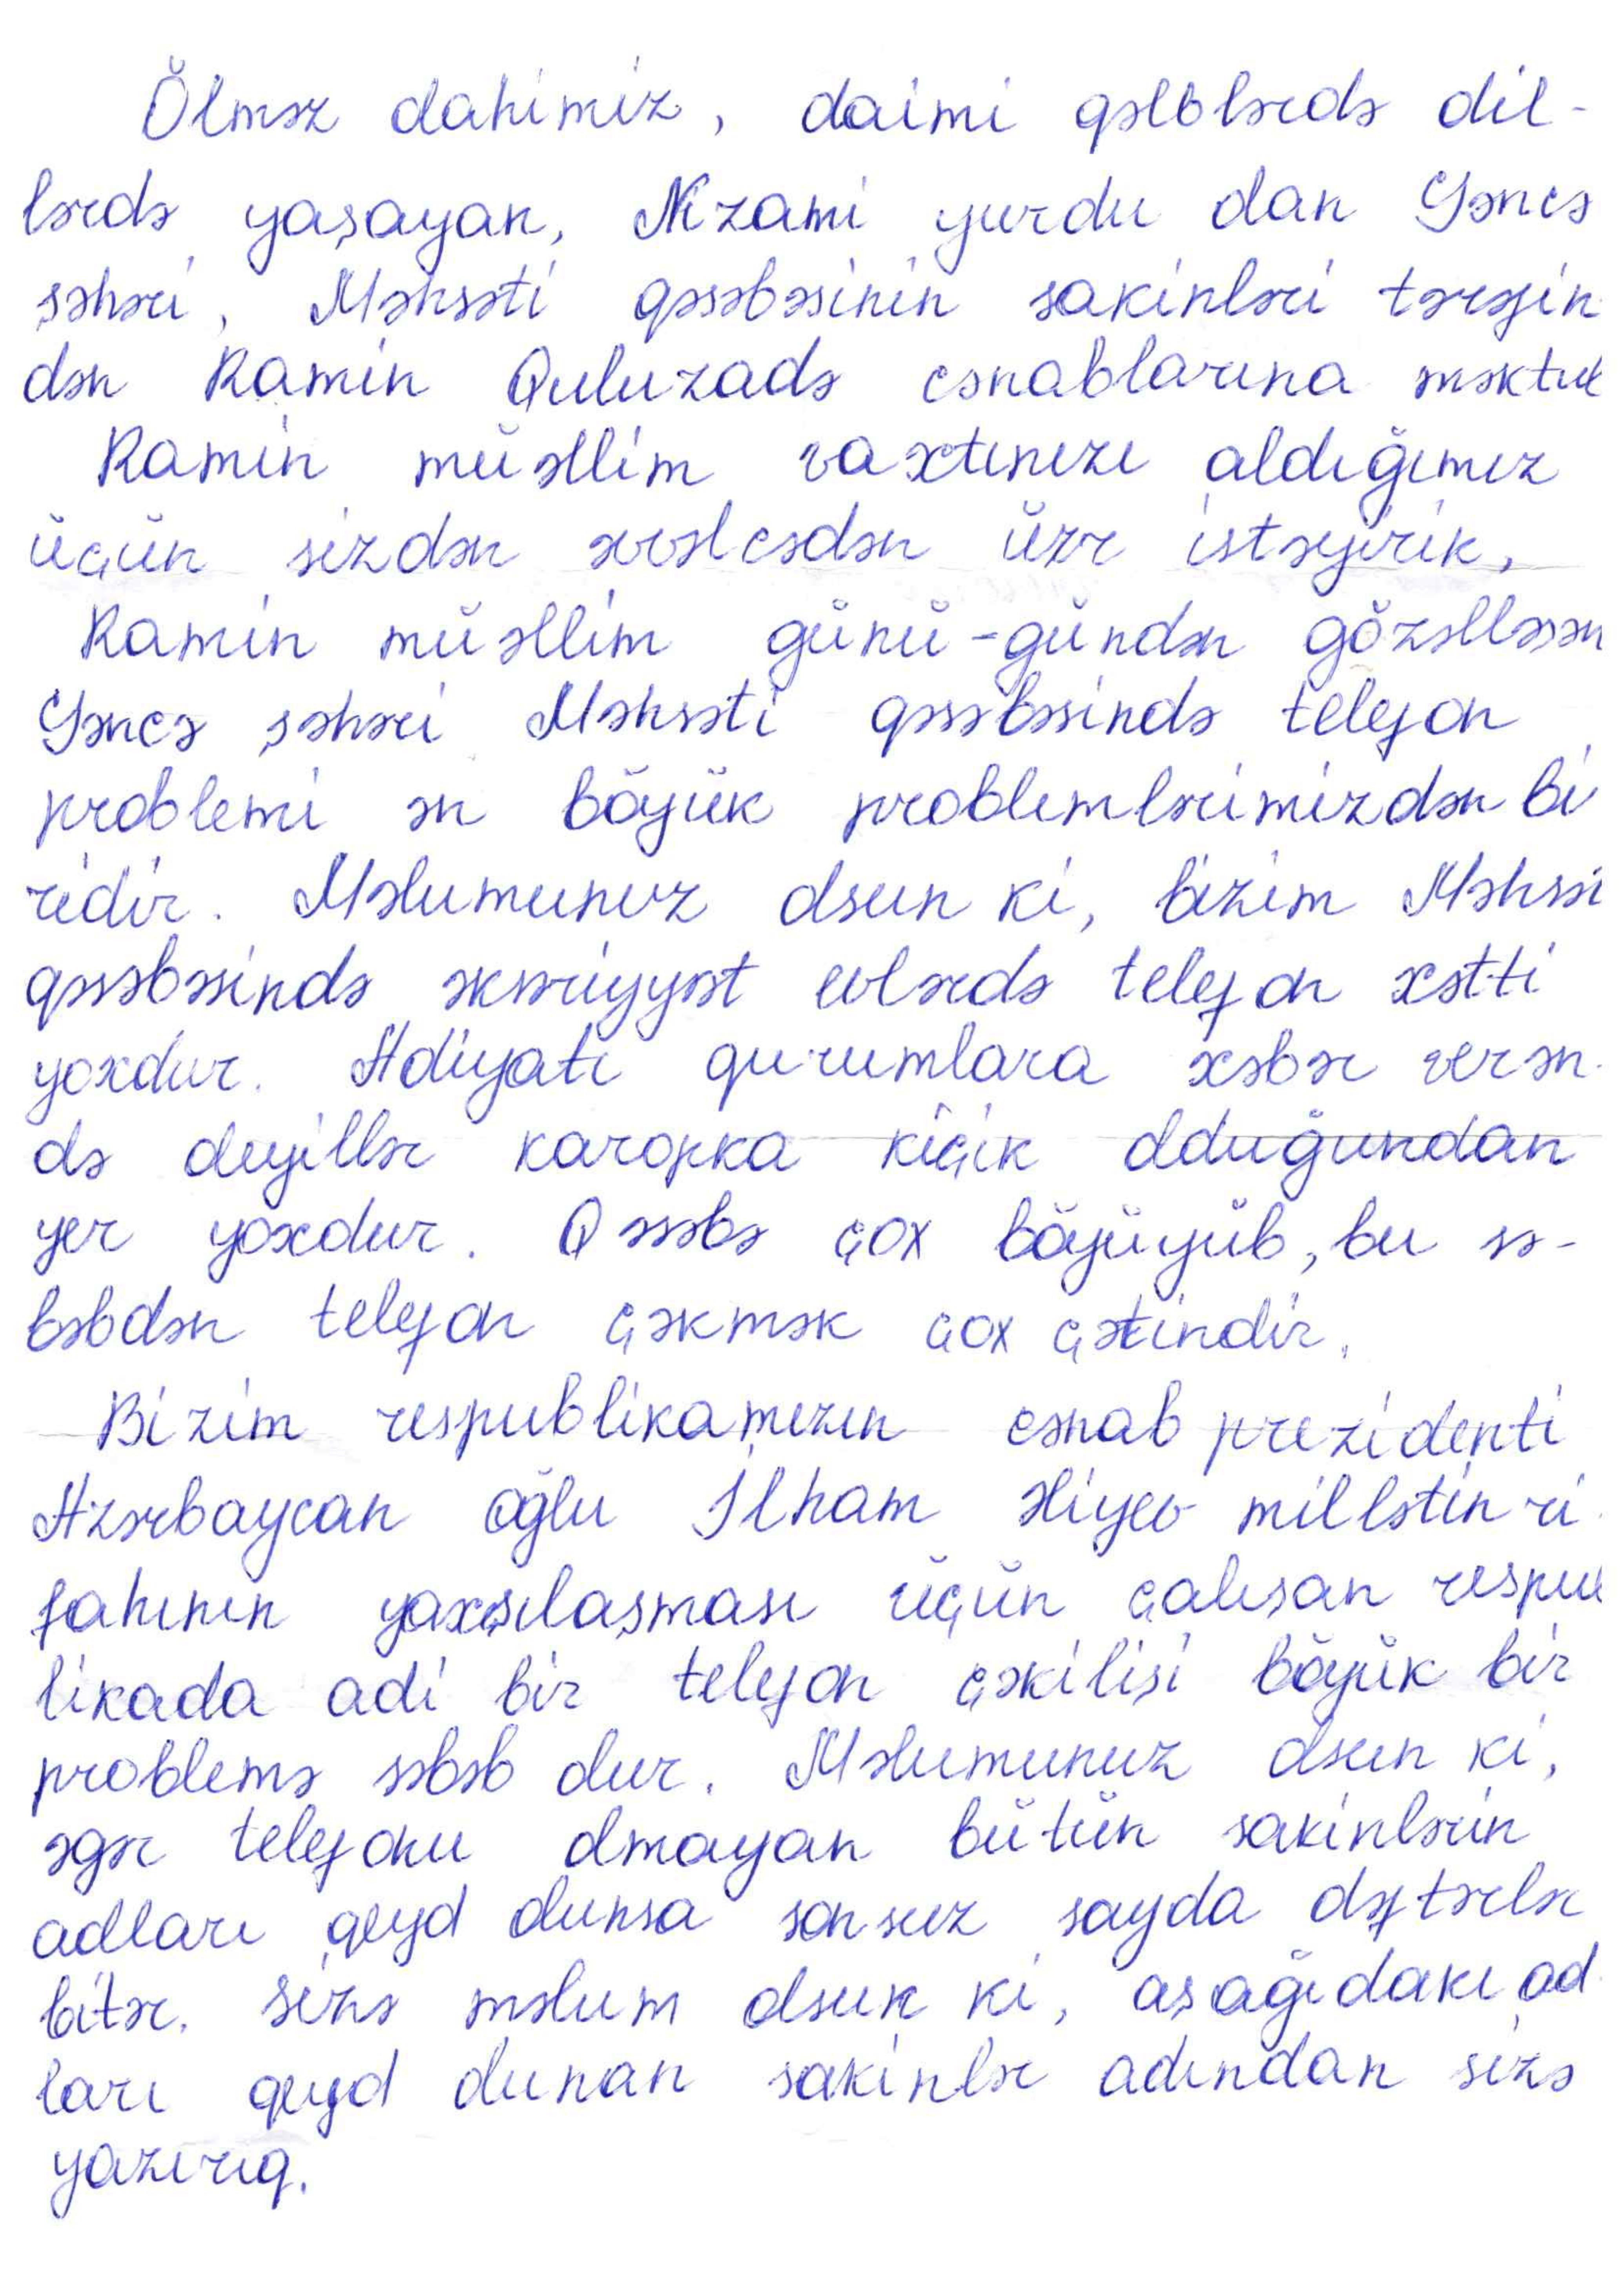 Ölməz dahimiz, daimi qəlblərdə dil-
lərdə yaşayan, Nizami yurdu dan Gəncə
şəhəri, Məhsəti qəsəbəsinin sakinləri tərəfin
dən Ramin Quluzadə cənablarına məktub
Ramin müəllim vaxtınızı aldığımız
üçün sizdən əvəlcədən üzr istəyirik,
Ramin müəllim günü-gündən gözəlləşən
Gəncə şəhəri Məhsəti qəsəbəsində telefon
problemi ən böyük problemlərimizdən bi
ridir. Məlumunuz olsun ki, bizim Məhsəti
qəsəbəsində əksəriyyət evlərdə telefon xətti
yoxdur. Adiyatı qurumlara xəbər verən-
də deyillər karopka kiçik olduğundan
yer yoxdur. Qəsəbə çox böyüyüb, bu sə-
bəbdən telefon çəkmək çox çətindir.
Bizim respublikamızın cənab prezidenti
Azərbaycan oğlu İlham Əliyev millətin ri
fahının yaxşılaşması üçün çalışan respub
likada adi bir telefon çəkilişi böyük bir
problemə səbəb dur. Məlumunuz olsun ki,
əgər telefonu olmayan bütün sakinlərin
adları qeyd olunsa sonsuz sayda dəftərlər
bitər. Sizə məlum olsun ki, aşağıdakı ad
ları qeyd olunan sakinlər adından sizə
yazırıq.